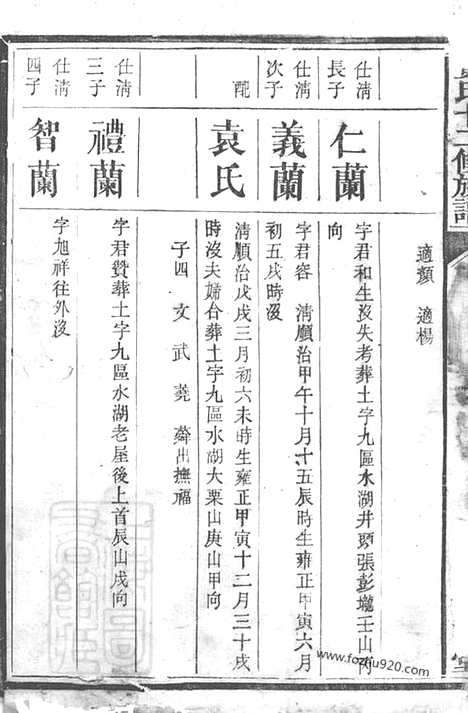 適 適楊
仕清
長子
仁蘭
字君和生沒失考葬土字九區水湖井頭張彭壠壬山丙
向
仕清
次子
義蘭
字君容 清順治甲午十月十五辰時生雍正甲寅六月
初五戌時沒
配
袁氏
清順治戊戌三月初六未時生雍正甲寅十二月三十戌
時沒夫婦合葬土字九區水湖大栗山庚山甲向
子四 文 武 蕘 出撫福
仕清
三子
禮蘭
字君贊葬土字九區水湖老屋後上首辰山戌向
仕清
四子
智蘭
字旭祥往外沒
www.fozhu920.com